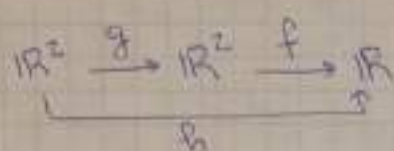 ℝ² g→ ℝ² f→ ℝ
h